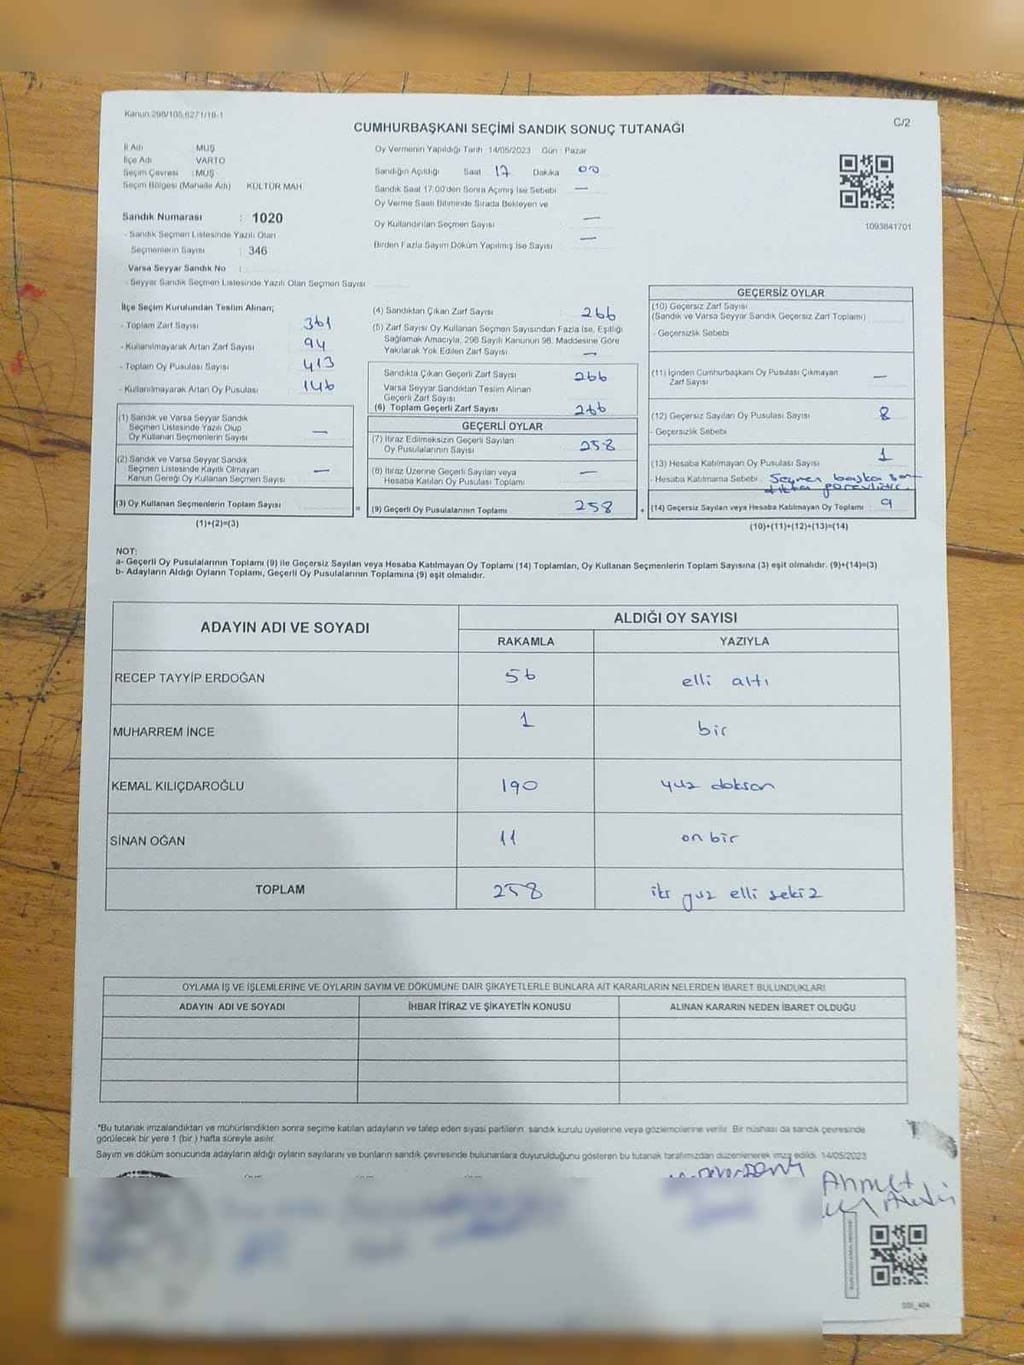 Kanun:298/105,6271/18-1
C/2
CUMHURBAŞKANI SEÇİMİ SANDIK SONUÇ TUTANAĞI
İl Adı : MUŞ
İlçe Adı : VARTO
Seçim Çevresi : MUŞ
Seçim Bölgesi (Mahalle Adı) KÜLTÜR MAH.
Sandık Numarası : 1020
- Sandık Seçmen Listesinde Yazılı Olan
Seçmenlerin Sayısı : 346
Varsa Seyyar Sandık No :
- Seyyar Sandık Seçmen Listesinde Yazılı Olan Seçmen Sayısı
Oy Vermenin Yapıldığı Tarih : 14/05/2023 Gün : Pazar
Sandığın Açıldığı Saat 17 Dakika 00
Sandık Saat 17:00'den Sonra Açılmış İse Sebebi —
Oy Verme Saati Bitiminde Sırada Bekleyen ve
Oy Kullandırılan Seçmen Sayısı —
Birden Fazla Sayım Döküm Yapılmış İse Sayısı —
1093841701
İlçe Seçim Kurulundan Teslim Alınan;
- Toplam Zarf Sayısı 361
- Kullanılmayarak Artan Zarf Sayısı 94
- Toplam Oy Pusulası Sayısı 413
- Kullanılmayarak Artan Oy Pusulası 146
(1) Sandık ve Varsa Seyyar Sandık
Seçmen Listesinde Yazılı Olup
Oy Kullanan Seçmenlerin Sayısı —
(2) Sandık ve Varsa Seyyar Sandık
Seçmen Listesinde Kayıtlı Olmayan
Kanun Gereği Oy Kullanan Seçmen Sayısı —
(3) Oy Kullanan Seçmenlerin Toplam Sayısı
(1)+(2)=(3)
(4) Sandıktan Çıkan Zarf Sayısı 266
(5) Zarf Sayısı Oy Kullanan Seçmen Sayısından Fazla İse, Eşitliği
Sağlamak Amacıyla, 298 Sayılı Kanunun 98. Maddesine Göre
Yakılarak Yok Edilen Zarf Sayısı —
Sandıkta Çıkan Geçerli Zarf Sayısı 266
Varsa Seyyar Sandıktan Teslim Alınan
Geçerli Zarf Sayısı
(6) Toplam Geçerli Zarf Sayısı 266
GEÇERLİ OYLAR
(7) İtiraz Edilmeksizin Geçerli Sayılan
Oy Pusulalarının Sayısı 258
(8) İtiraz Üzerine Geçerli Sayılan veya
Hesaba Katılan Oy Pusulası Toplamı —
= (9) Geçerli Oy Pusulalarının Toplamı 258 +
GEÇERSİZ OYLAR
(10) Geçersiz Zarf Sayısı
(Sandık ve Varsa Seyyar Sandık Geçersiz Zarf Toplamı)
- Geçersizlik Sebebi
(11) İçinden Cumhurbaşkanı Oy Pusulası Çıkmayan
Zarf Sayısı —
(12) Geçersiz Sayılan Oy Pusulası Sayısı 8
- Geçersizlik Sebebi
(13) Hesaba Katılmayan Oy Pusulası Sayısı 1
- Hesaba Katılmama Sebebi Seçmen başka san
dıkta görevlidir.
(14) Geçersiz Sayılan veya Hesaba Katılmayan Oy Toplamı 9
(10)+(11)+(12)+(13)=(14)
NOT:
a- Geçerli Oy Pusulalarının Toplamı (9) ile Geçersiz Sayılan veya Hesaba Katılmayan Oy Toplamı (14) Toplamları, Oy Kullanan Seçmenlerin Toplam Sayısına (3) eşit olmalıdır. (9)+(14)=(3)
b- Adayların Aldığı Oyların Toplamı, Geçerli Oy Pusulalarının Toplamına (9) eşit olmalıdır.
ADAYIN ADI VE SOYADI ALDIĞI OY SAYISI
RAKAMLA YAZIYLA
RECEP TAYYİP ERDOĞAN 56 elli altı
MUHARREM İNCE 1 bir
KEMAL KILIÇDAROĞLU 190 yuz doksan
SİNAN OĞAN 11 on bir
TOPLAM 258 iki yuz elli sekiz
OYLAMA İŞ VE İŞLEMLERİNE VE OYLARIN SAYIM VE DÖKÜMÜNE DAİR ŞİKAYETLERLE BUNLARA AİT KARARLARIN NELERDEN İBARET BULUNDUKLARI
ADAYIN ADI VE SOYADI İHBAR İTİRAZ VE ŞİKAYETİN KONUSU ALINAN KARARIN NEDEN İBARET OLDUĞU
*Bu tutanak imzalandıktan ve mühürlendikten sonra seçime katılan adayların ve talep eden siyasi partilerin, sandık kurulu üyelerine veya gözlemcilerine verilir. Bir nüshası da sandık çevresinde
görülecek bir yere 1 (bir ) hafta süreyle asılır.
Sayım ve döküm sonucunda adayların aldığı oyların sayılarını ve bunların sandık çevresinde bulunanlara duyurulduğunu gösteren bu tutanak tarafımızdan düzenlenerek imza edildi. 14/05/2023
Ahmet